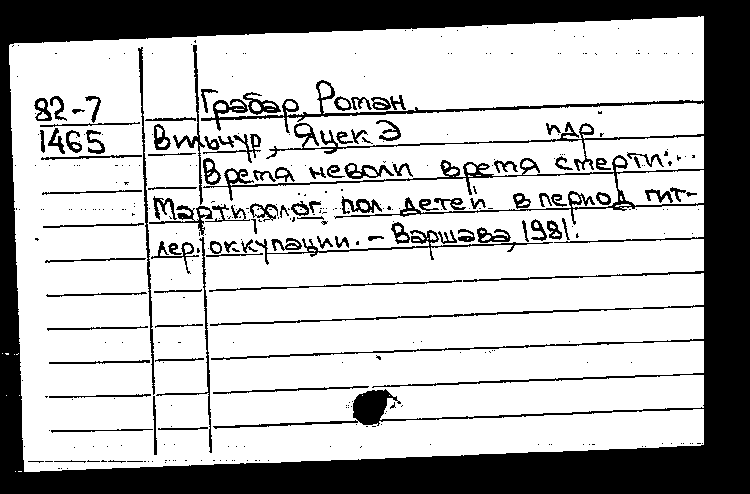 82-7 Грабар, Роман.
1465 Вильчур, Яцек Э пдр.
Время неволи время смерти:...
Мартиролог пол. детей в период гит-
лер. оккупации. - Варшава, 1981.